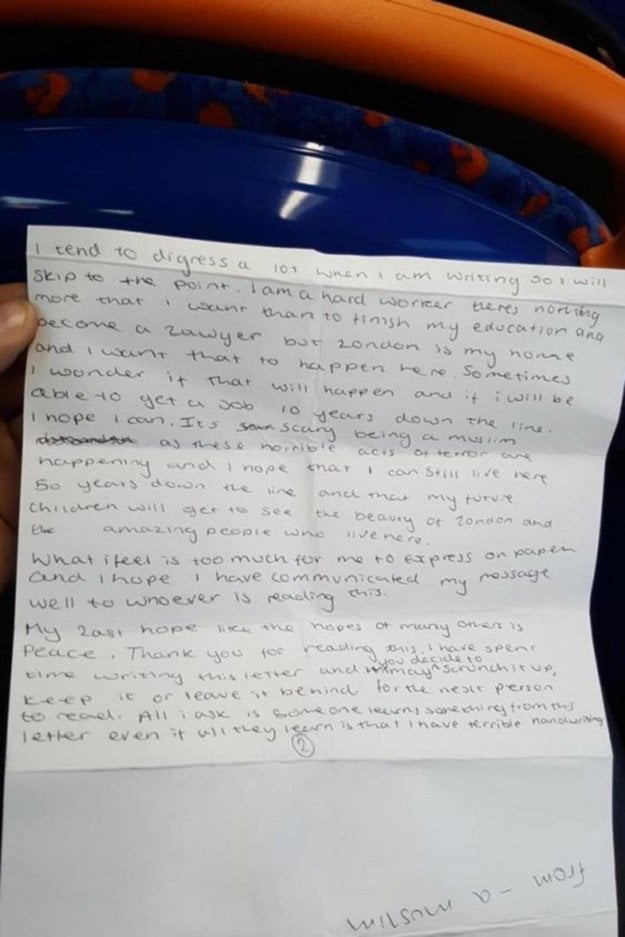 I tend to digress a lot when I am writing so I will
skip to the point. I am a hard worker theres nothing
more that I want than to finish my education and
become a Lawyer but London is my home
and I want that to happen here. Sometimes
I wonder if that will happen and if i will be
able to get a job 10 years down the line.
I hope I can. Its scary being a muslim
as these horrible acts of terror are
happening and I hope that I can still live here
50 years down the line and that my future
children will get to see the beauty of London and
the amazing people who live here.
What i feel is too much for me to express on paper
and I hope I have communicated my message
well to whoever is reading this.
My last hope like the hopes of many others is
Peace. Thank you for reading this. I have spent
time writing this letter and you decide to
may scrunch it up,
keep it or leave it behind for the next person
to read. All i ask is someone learns something from this
letter even if all they learn is that I have terrible handwriting
2
from - a muslim